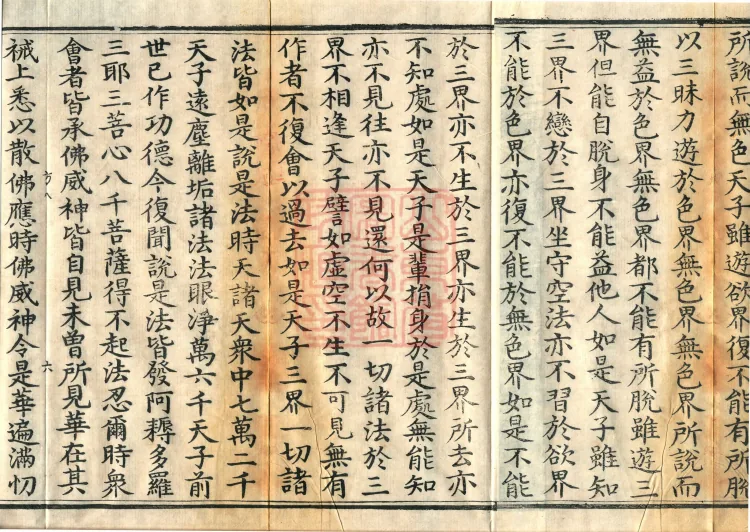 所說而無色天子雖遊欲界復不能有所脫
以三昧力遊於色界無色界無色界所說而
無益於色界無色界都不能有所脫雖遊三
界但能自脫身不能益他人如是天子雖知
三界不戀於三界坐守空法亦不習於欲界
不能於色界亦復不能於無色界如是不能
於三界亦不生於三界亦生於三界所去亦
不知處如是天子是輩捐身於是處無能知
亦不見往亦不見還何以故一切諸法於三
界不相逢天子譬如虛空不生不可見無有
作者不復會以過去如是天子三界一切諸
法皆如是說是法時天諸天衆中七萬二千
天子遠塵離垢諸法法眼淨萬六千天子前
世已作功德今復聞說是法皆發阿耨多羅
三耶三菩心八千菩薩得不起法忍爾時衆
會者皆承佛威神皆自見未曾所見華在其
方八 六
祴上悉以散佛應時佛威神令是華遍滿忉